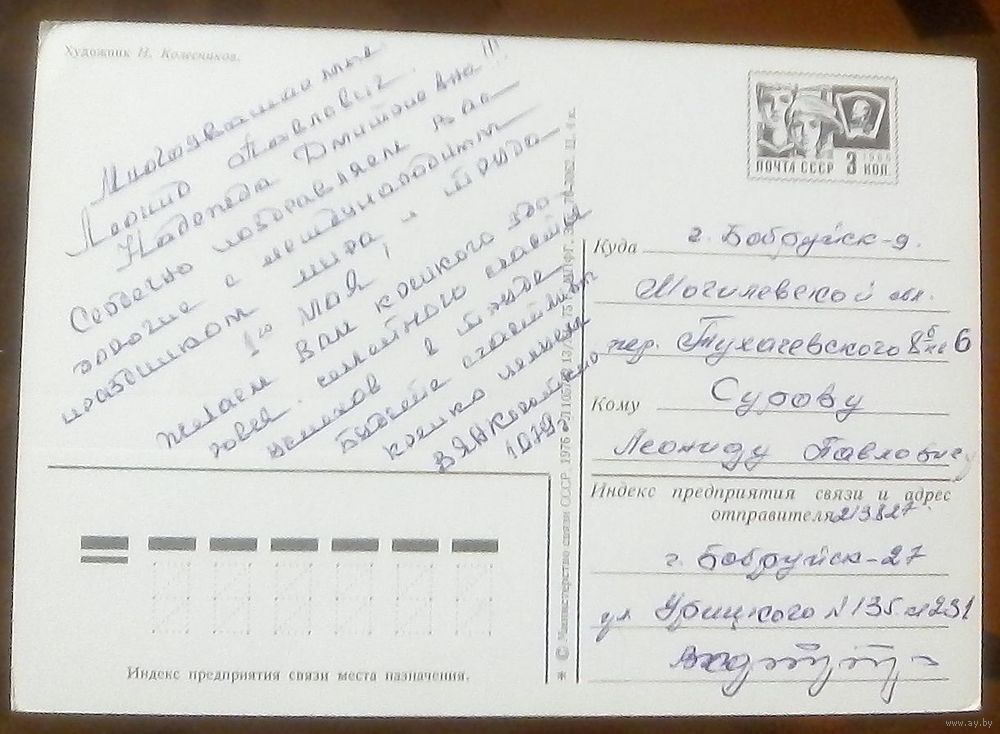 Художник Н. Колесников.
Многоуважаемые
Леонид Павлович
Надежда Дмитриевна!!!
Сердечно поздравляем вас
дорогие с международным
праздником мира и труда
1го мая!
Желаем Вам крепкого здо-
ровья.
успехов в труде
Будьте счастливы
1979г
ПОЧТА СССР 3 КОП.
1966
Куда г. Бобруйск-9.
Могилевской обл.
пер. Тухачевского 8б кв 6
Кому Сурову
Леониду Павловичу
Индекс предприятия связи и адрес
отправителя 213827
г. Бобруйск-27
ул Урицкого N 135 кв 231
Индекс предприятия связи места назначения.
© Министерство связи СССР. 1976
www.ay.by